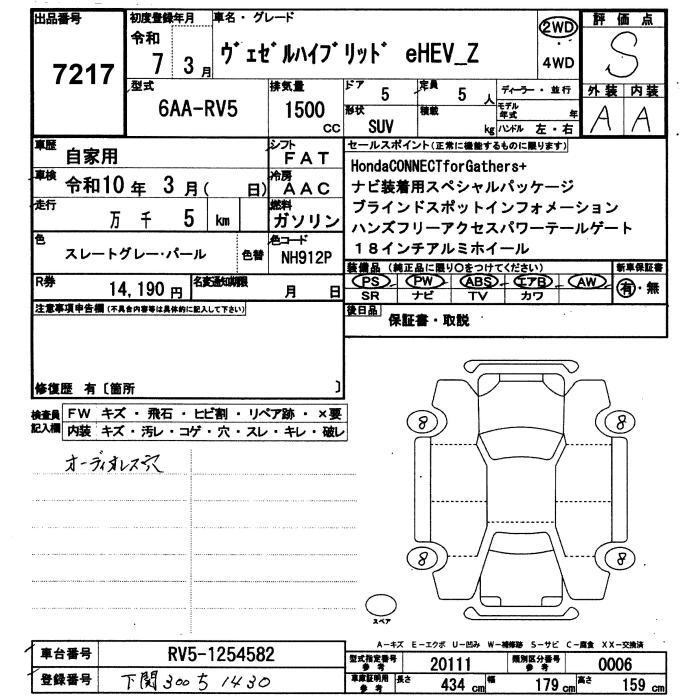 出品番号
7217
初度登録年月
令和
7 3 月
車名・グレード
ヴェゼルハイブリッド eHEV_Z
2WD
4WD
評価点
S
型式
6AA-RV5
排気量
1500
CC
ドア
5
定員
5 人
形状
SUV
積載
kg
ディーラー・並行
モデル年式 年
ハンドル 左・右
外装 内装
A A
車歴
自家用
シフト
FAT
車検
令和10 年 3 月( 日)
冷房
AAC
走行
万 千 5 km
燃料
ガソリン
色
スレートグレー・パール
色替
色コード
NH912P
R券
14,190 円
名変通知期限
月 日
セールスポイント(正常に機能するものに限ります)
HondaCONNECTforGathers+
ナビ装着用スペシャルパッケージ
ブラインドスポットインフォメーション
ハンズフリーアクセスパワーテールゲート
18インチアルミホイール
装備品 (純正品に限り○をつけてください)
新車保証書
PS PW ABS エアB AW
SR ナビ TV カワ
有・無
後日品
保証書・取説
注意事項申告欄 (不具合内容等は具体的に記入して下さい)
修復歴 有〔箇所 〕
検査員記入欄
FW キズ ・ 飛石 ・ ヒビ割 ・ リペア跡 ・ ×要
内装 キズ・汚レ・コゲ・穴・スレ・キレ・破レ
オーディオレス穴
8
8
8
8
スペア
A-キズ E-エクボ U-凹み W-補修跡 S-サビ C-腐食 XX-交換済
車台番号
RV5-1254582
登録番号
下関 300 ち 1430
型式指定番号 参考
20111
類別区分番号 参考
0006
車庫証明用 参考
長さ 434 cm
幅 179 cm
高さ 159 cm